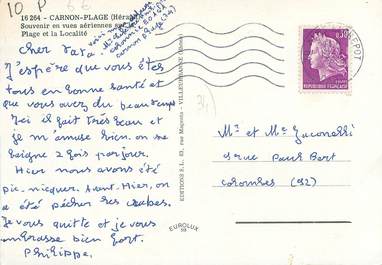 10 P 66
16 264 - CARNON-PLAGE (Hérault)
Souvenir en vues aériennes sur la
Plage et la Localité
Cher Tata
J'espère que vous êtes
tous en bonne santé et
que vous avez du beau temps
Ici il fait très beau et
je m'amuse bien on se
baigne 2 fois par jour.
Hier nous avons été
pic-nicquer. Avant-Hier, on
a été pêcher des crabes.
Je vous quitte et je vous
embrasse bien fort.
Philippe.
EDITIONS S.L. 63, rue Magenta - VILLEURBANNE (Rhône)
EUROLUX
34)
0,30
REPUBLIQUE FRANÇAISE
Mr et Me Jaconelli
rue Paul Bert
Colombes (92)